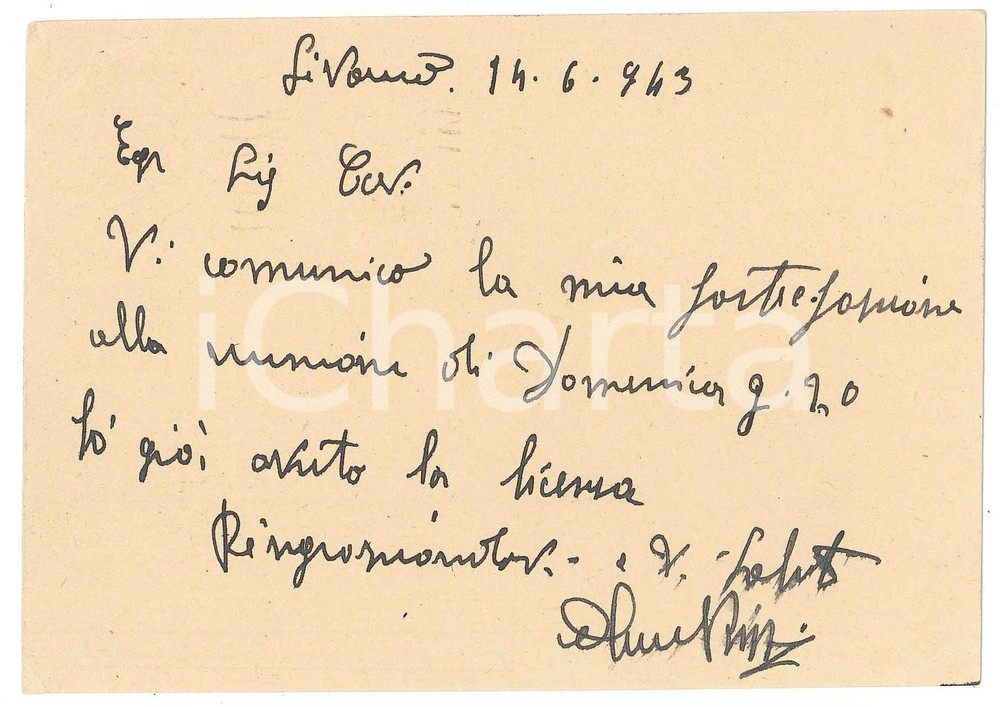 Livorno. 14.6.943
Egr Sig Cav.
Vi comunico la mia partecipazione
alla riunione di Domenica g. 20
hò già avuto la licenza
Ringraziandov. - e V. Saluti
iCharta